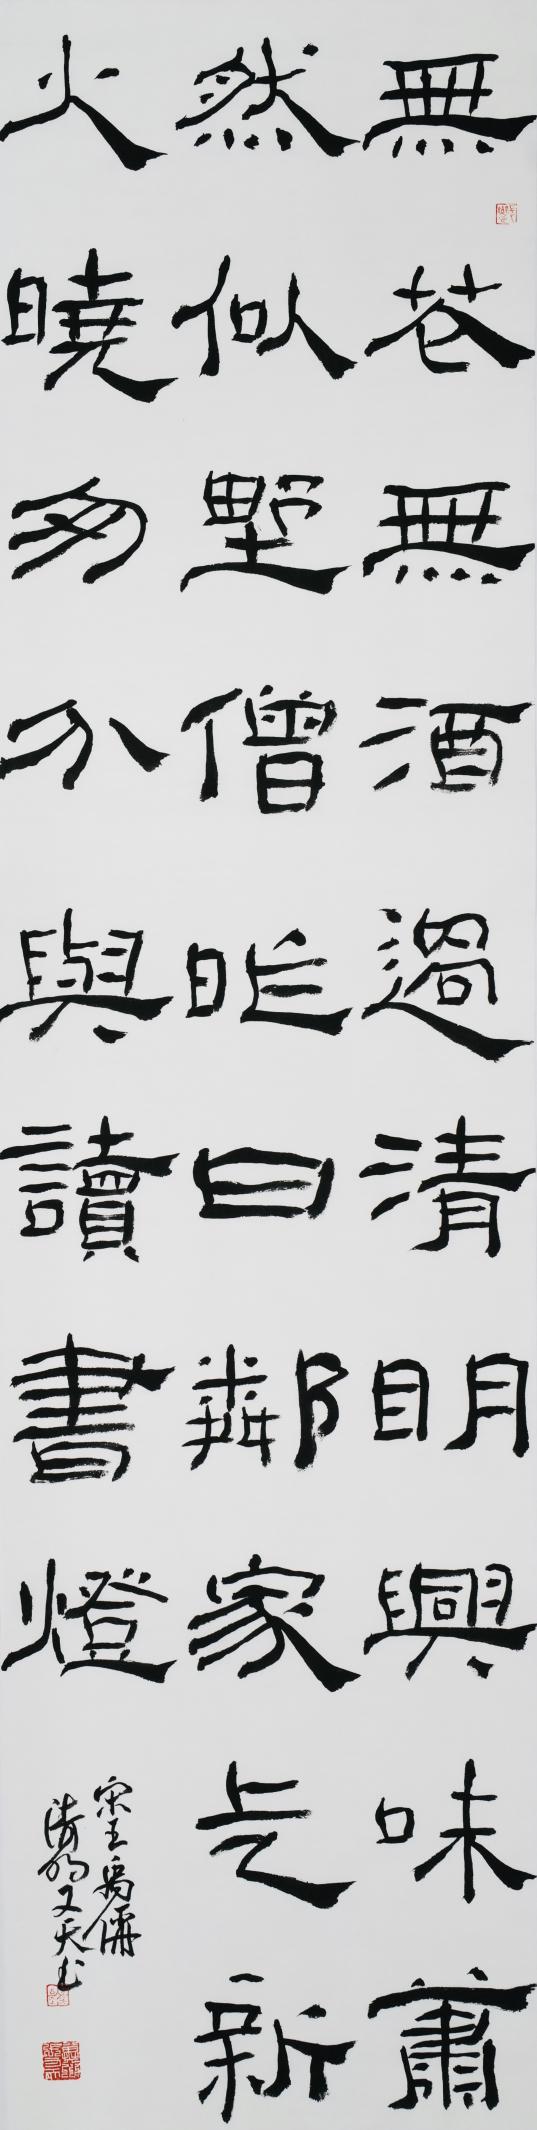 無花無酒過清明興味蕭
然似野僧昨日鄰家乞新
火曉匆分與讀書燈
宋王禹偁
清明又天书